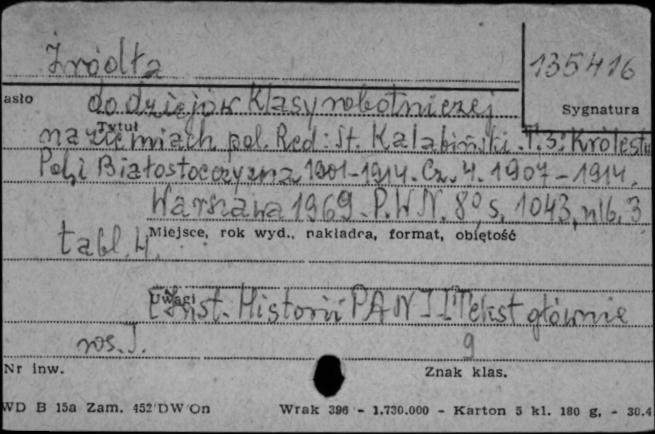 Źródła
135416
asło
do dziejów klasy robotniczej
Sygnatura
Tytuł
na ziemiach pol. Red: St. Kalabiński. T. 3: Królestw
Pol. i Białostocczyzna 1901-1914. Cz. 4. 1907-1914.
Warszawa 1969. P.W.N. 8º, s. 1043, nlb. 3
Miejsce, rok wyd., nakładca, format, objętość
tabl. 4.
Uwagi
[Inst. Historii PAN] [Tekst głównie
ros.].
9
Nr inw.
Znak klas.
WD B 15a Zam. 452 DW On
Wrak 396 - 1.730.000 - Karton 5 kl. 180 g. - 30.4